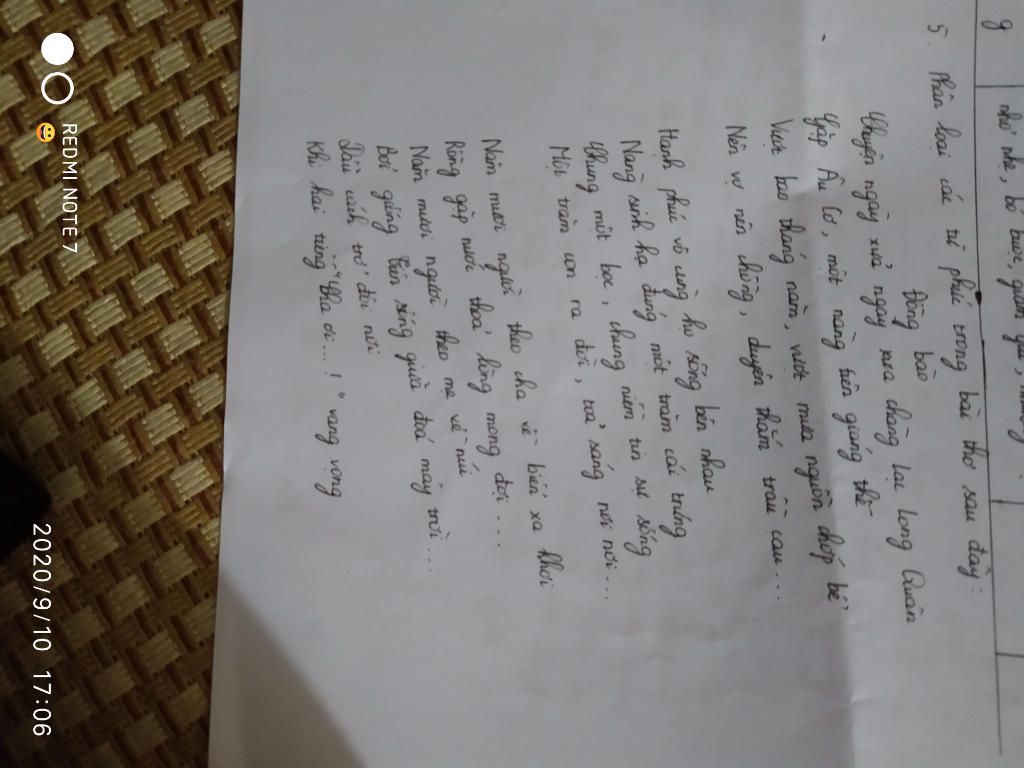 g
nhỏ nhẹ, bó buộc, quanh quẽ,
5. Phân loại các từ phức trong bài thơ sau đây:
Đồng bào
Chuyện ngày xửa ngày xưa chàng Lạc Long Quân
Gặp Âu Cơ, một nàng tiên giáng thế
Vượt bao tháng năm, vượt mưa nguồn chớp bể
Nên vợ nên chồng, duyên thắm trầu cau...
Hạnh phúc vô cùng họ sống bên nhau
Nàng sinh hạ đúng một trăm cái trứng
Chung một bọc, chung niềm tin sự sống
Một trăm con ra đời, toả sáng nơi nơi...
Năm mươi người theo cha về biển xa khơi
Rồng gặp nước thoả lòng mong đợi...
Năm mươi người theo mẹ về núi
Bởi giống Tiên sống giữa đá mây trời...
Dẫu cách trở đôi nơi
Khi hai tiếng "Cha ơi...!" vang vọng
REDMI NOTE 7
2020/9/10 17:06